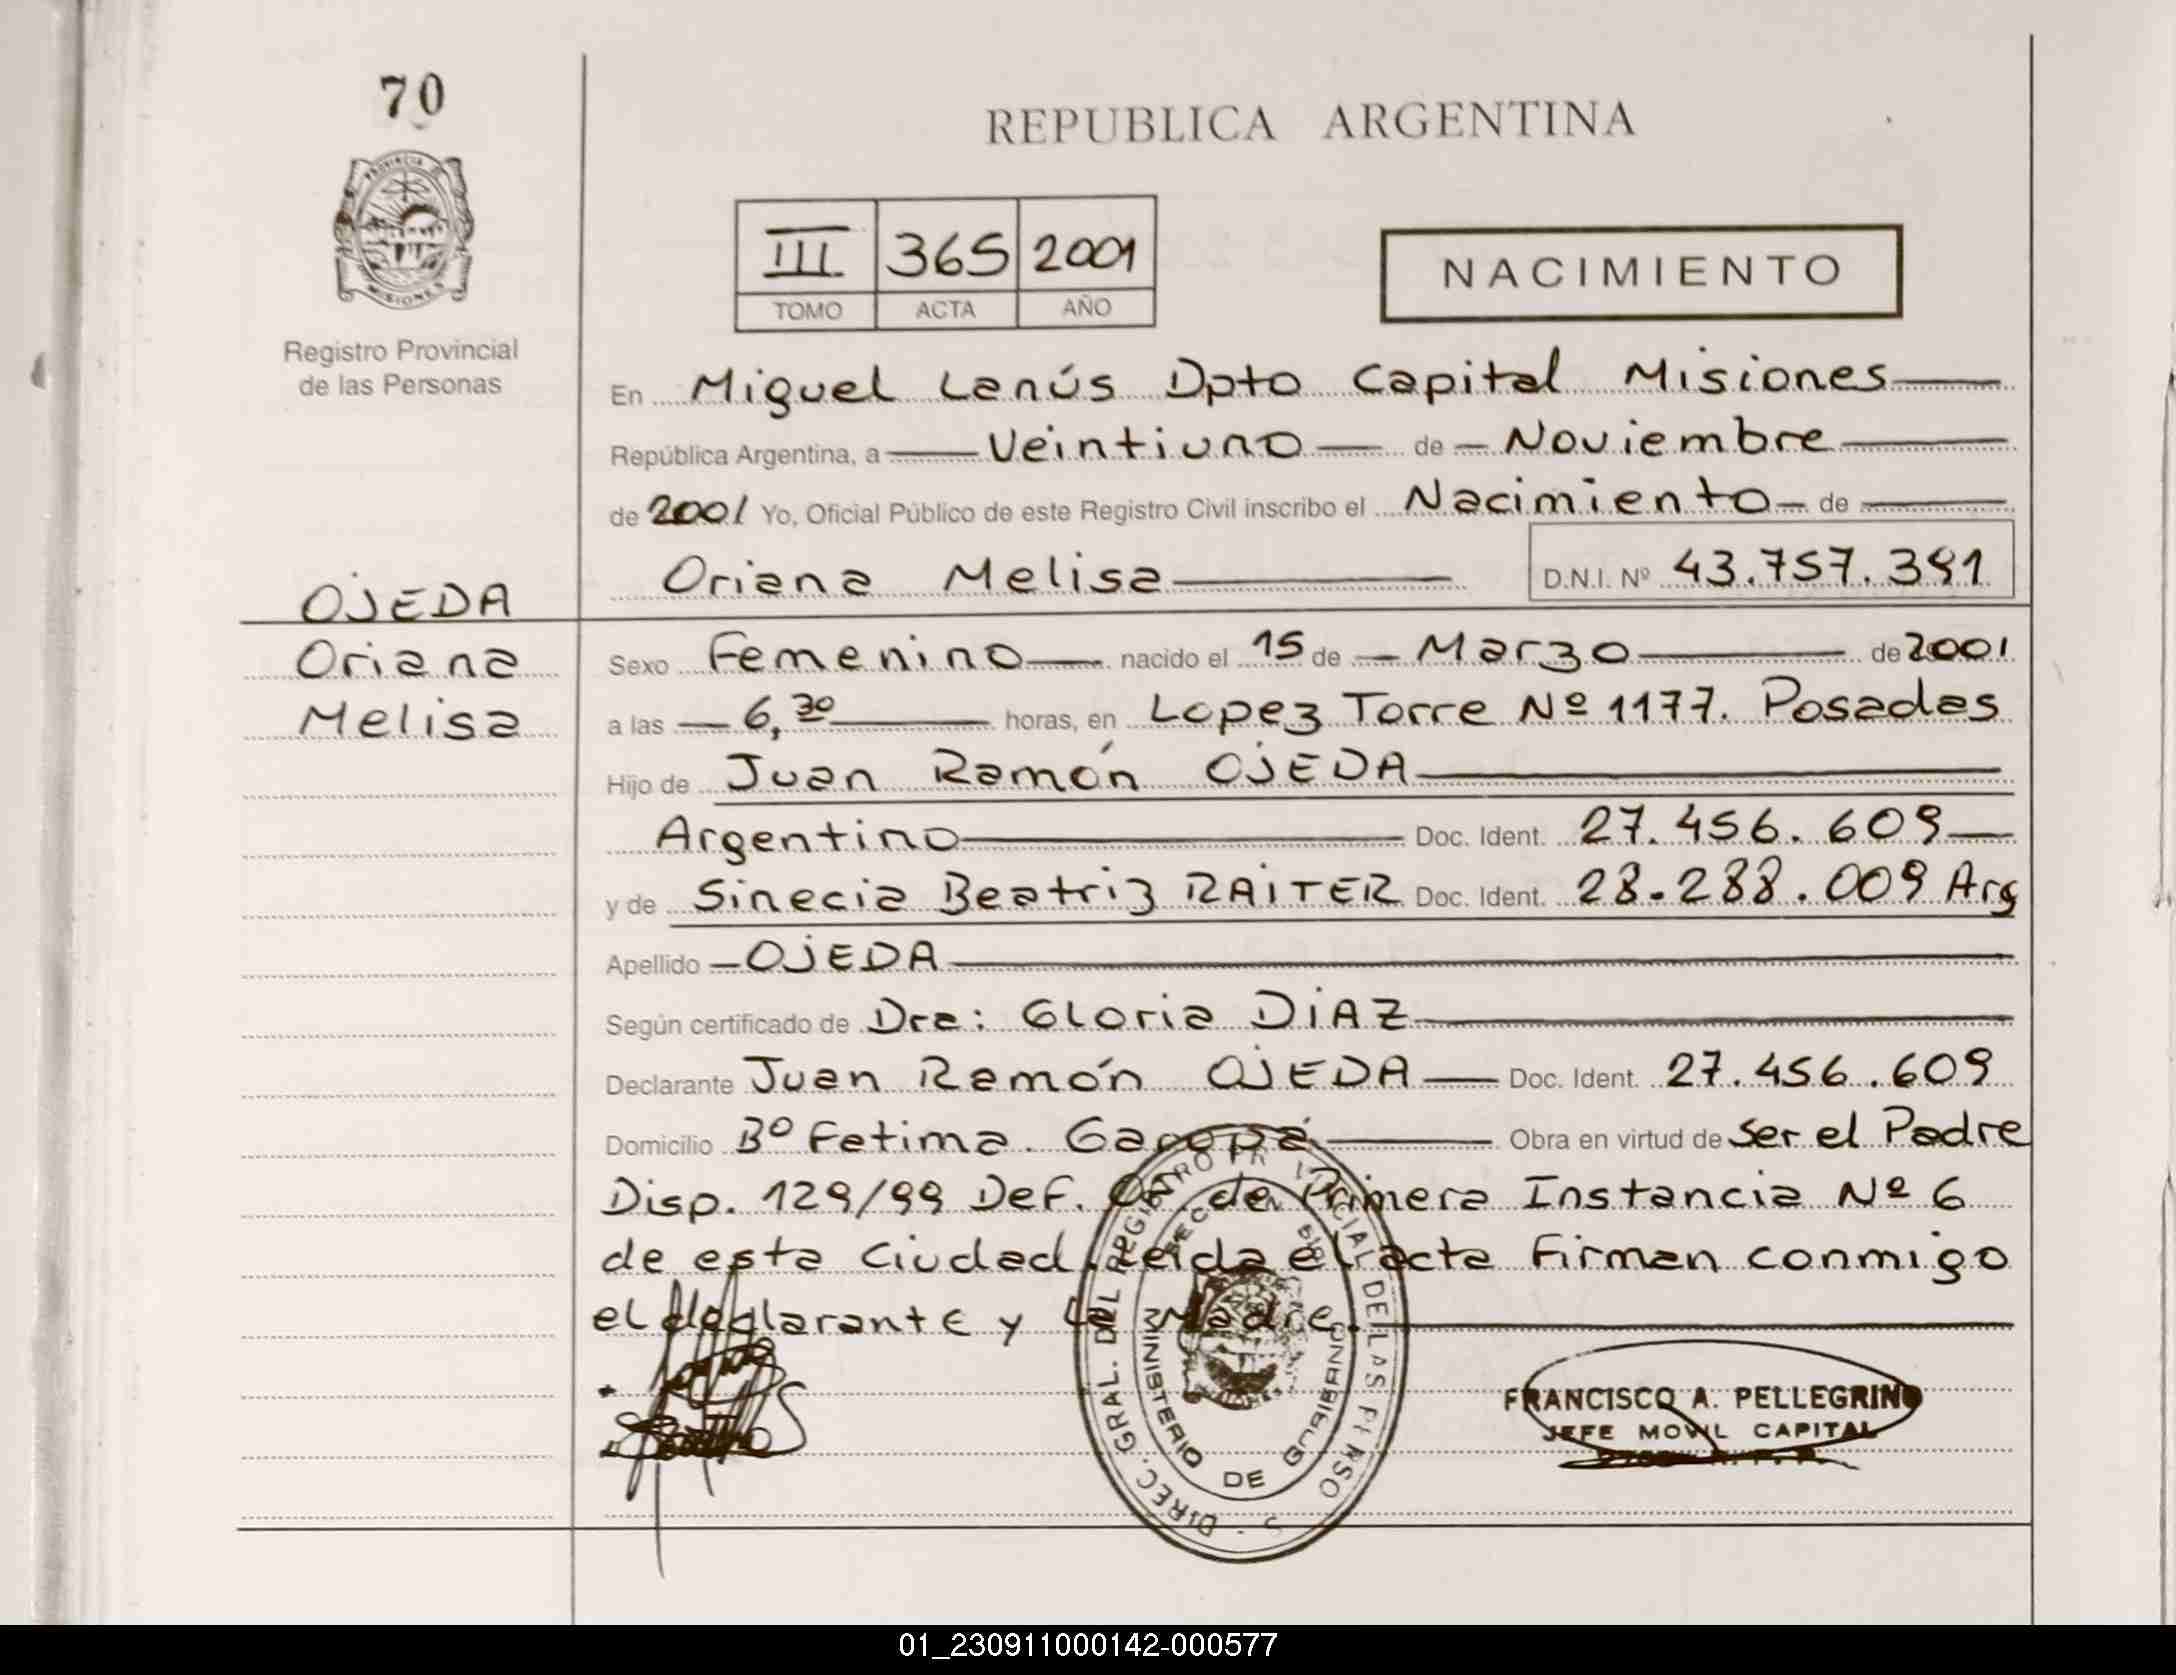 70
PROVINCIA DE
MISIONES
Registro Provincial
de las Personas
OJEDA
Oriana
Melisa
REPUBLICA ARGENTINA
III 365 2001
TOMO ACTA AÑO
NACIMIENTO
En Miguel Lanús Dpto Capital Misiones
República Argentina, a Veintiuno de Noviembre
de 2001 Yo, Oficial Público de este Registro Civil inscribo el Nacimiento de
Oriana Melisa D.N.I. Nº 43.757.391
Sexo Femenino nacido el 15 de Marzo de 2001
a las 6,30 horas, en Lopez Torre Nº 1177. Posadas
Hijo de Juan Ramón OJEDA
Argentino Doc. Ident. 27.456.609
y de Sinecia Beatriz RAITER Doc. Ident. 28.288.009 Arg
Apellido OJEDA
Según certificado de Dra: Gloria DIAZ
Declarante Juan Ramón OJEDA Doc. Ident. 27.456.609
Domicilio Bº Fatima. Garupá Obra en virtud de Ser el Padre
Disp. 129/99 Def. Of. de Primera Instancia Nº 6
de esta Ciudad leida el acta Firman conmigo
el declarante y la Madre.
DIREC. GRAL. DEL REGISTRO PROVINCIAL DE LAS PERSO S
MINISTERIO DE GOBIERNO
FRANCISCO A. PELLEGRINO
JEFE MOVIL CAPITAL
01_230911000142-000577